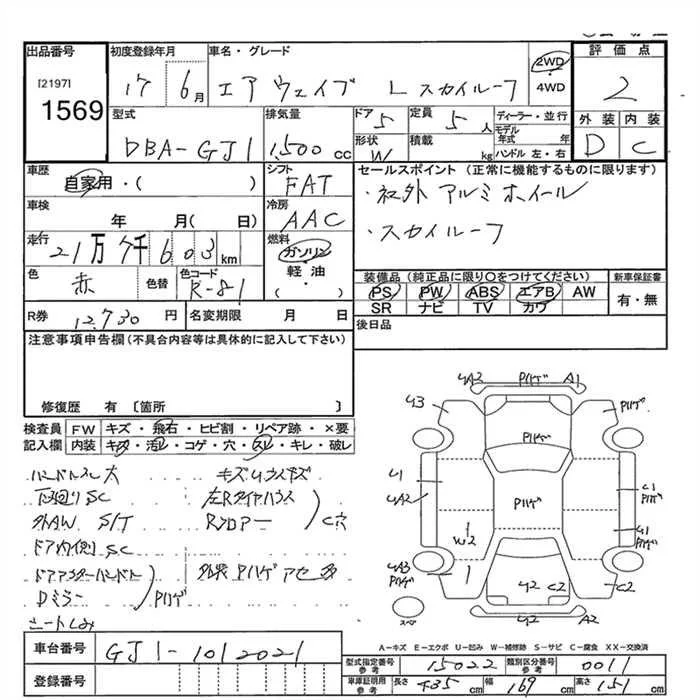 出品番号
[2197]
1569
初度登録年月
17 6月
車名・グレード
エアウェイブ L スカイルーフ
2WD
4WD
評価点
2
外装 内装
D C
型式
DBA-GJ1
排気量
1,500 cc
ドア 5
形状 W
定員 5人
積載 kg
ディーラー・並行
モデル年式 年
ハンドル 左・右
車歴
自家用・( )
シフト
FAT
セールスポイント (正常に機能するものに限ります)
・社外アルミホイール
・スカイルーフ
車検
年 月( 日)
冷房
AAC
走行
21万7千603km
燃料
ガソリン
軽油・
( )
色
赤
色替
色コード
R-81
装備品 (純正品に限り○をつけてください)
PS PW ABS エアB AW
SR ナビ TV カワ
新車保証書
有・無
R券 12,730 円
名変期限 月 日
後日品
注意事項申告欄(不具合内容等は具体的に記入して下さい)
修復歴 有 [箇所 ]
検査員 FW キズ・飛石・ヒビ割・リペア跡・×要
記入欄 内装 キズ・汚レ・コゲ・穴・スレ・キレ・破レ
下回りSC
外AW S/T
ドア内側SC
Dミラー
シートしみ
C穴
A2 Pハゲ A1
U3 Pハゲ
U1
UA2
Pハゲ
U1
Pハゲ
U1
Pハゲ
W2
Pハゲ
U2 C2 C2
A2
スペア
A-キズ E-エクボ U-凹み W-補修跡 S-サビ C-腐食 XX-交換済
車台番号 GJ1-1012021
登録番号
型式指定番号 参考 15022 類別区分番号 参考 0011
車庫証明用 参考 長さ 435 cm 幅 169 cm 高さ 151 cm